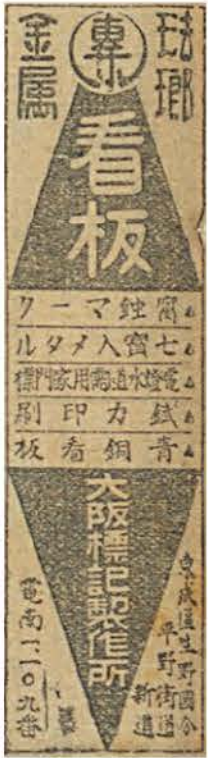 琺瑯
金属
看板
腐蝕マーク
七寳入メタル
電燈水道需用家門標
錻力印刷
青銅看板
大阪標記製作所
東成區生野國分
平野街道
新道
電南一一〇九番